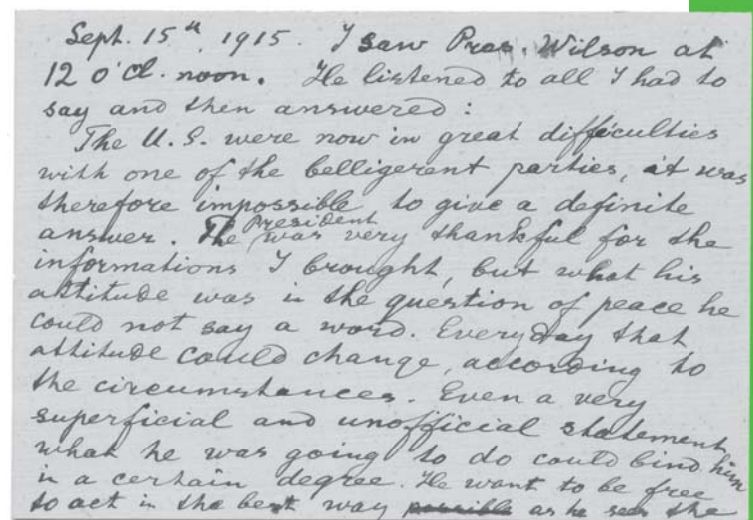 Sept. 15th, 1915. I saw Pres. Wilson at
12 o'cl. noon. He listened to all I had to
say and then answered:
The U.S. were now in great difficulties
with one of the belligerent parties, it was
therefore impossible to give a definite
answer. The President was very thankful for the
informations I brought, but what his
attitude was in the question of peace he
could not say a word. Everyday that
attitude could change, according to
the circumstances. Even a very
superficial and unofficial statement,
what he was going to do could bind him
in a certain degree. He want to be free
to act in the best way possible as he sees the